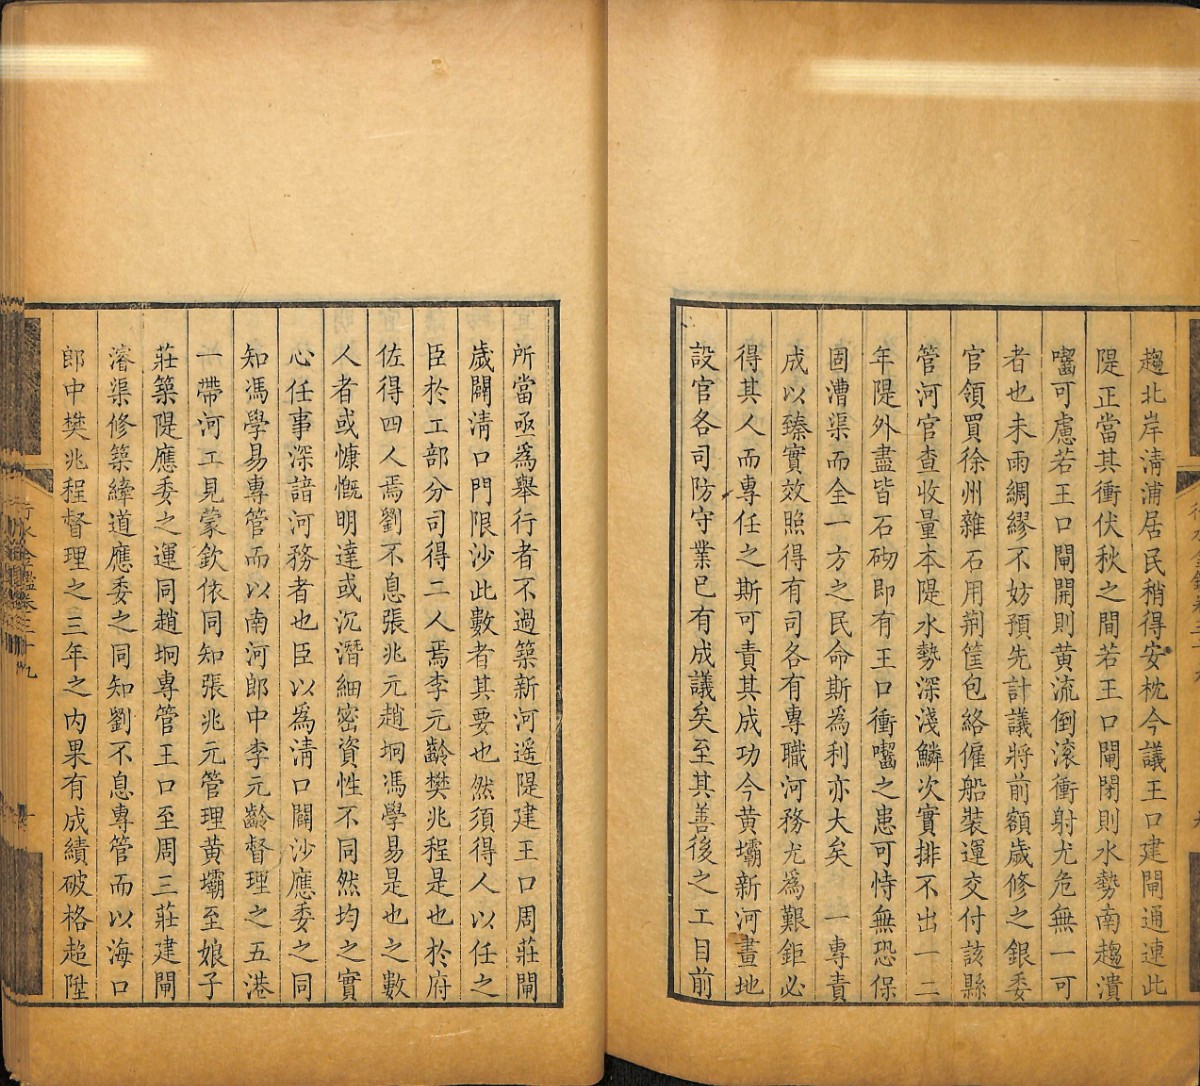 趨北岸淸浦居民稍得安枕今議王口建閘通連此
隄正當其衝伏秋之間若王口閘閉則水勢南趨潰
囓可慮若王口閘開則黄流倒滚衝射尤危無一可
者也未雨綢繆不妨預先計議將前額歲修之銀委
官領買徐州雜石用荆筐包絡僱船裝運交付該縣
管河官查收量本隄水勢深淺鱗次實排不出一二
年隄外盡皆石砌即有王口衝囓之患可恃無恐保
固漕渠而全一方之民命斯爲利亦大矣　一專責
成以臻實效照得有司各有專職河務尤爲艱鉅必
得其人而專任之斯可責其成功今黄壩新河畫地
設官各司防守業已有成議矣至其善後之工目前
所當亟爲舉行者不過築新河遥隄建王口周莊閘
歲闢淸口門限沙此數者其要也然須得人以任之
臣於工部分司得二人焉李元齡樊兆程是也於府
佐得四人焉劉不息張兆元趙坰馮學易是也之數
人者或慷慨明達或沉潛細密資性不同然均之實
心任事深諳河務者也臣以爲淸口闢沙應委之同
知馮學易專管而以南河郎中李元齡督理之五港
一帶河工見蒙欽依同知張兆元管理黄壩至娘子
莊築隄應委之運同趙坰專管王口至周三莊建閘
濬渠修築緯道應委之同知劉不息專管而以海口
郎中樊兆程督理之三年之内果有成績破格超陞
行水金鑑卷三十九